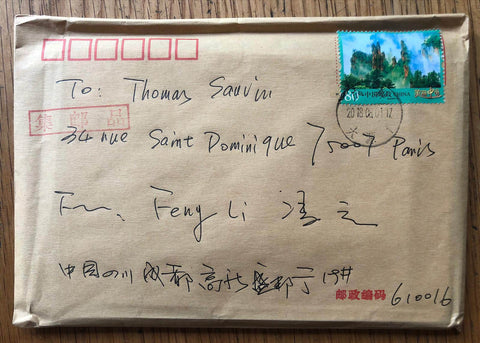 To: Thomas Sauvin
集邮品
34 rue Saint Dominique 75007 Paris
From. Feng Li 冯立
中国四川成都高新盛邦
邮政编码 610016
80 中国邮政 CHINA